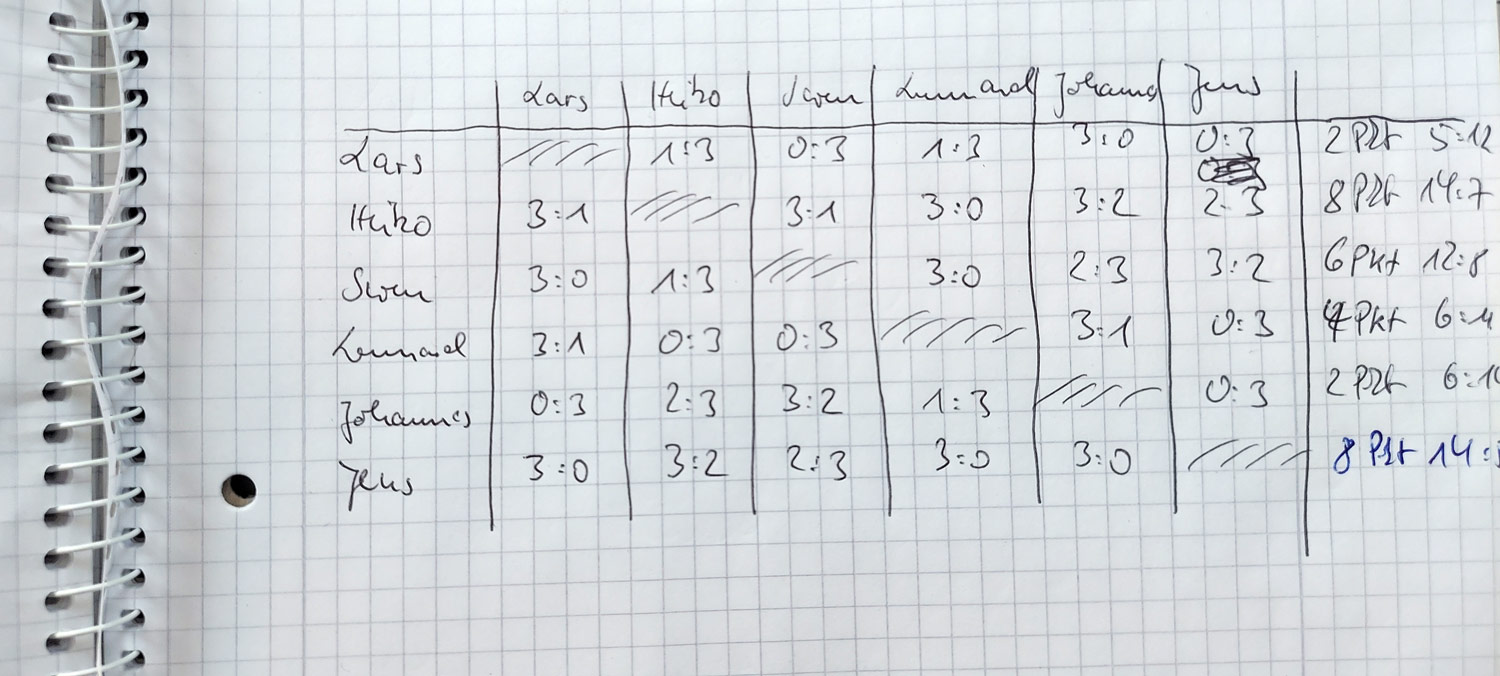 Lars Heiko Sven Lennard Johannes Jens
Lars 1:3 0:3 1:3 3:0 0:3 2 Pkt 5:12
Heiko 3:1 3:1 3:0 3:2 2:3 8 Pkt 14:7
Sven 3:0 1:3 3:0 2:3 3:2 6 Pkt 12:8
Lennard 3:1 0:3 0:3 3:1 0:3 4 Pkt
Johannes 0:3 2:3 3:2 1:3 0:3 2 Pkt
Jens 3:0 3:2 2:3 3:0 3:0 8 Pkt